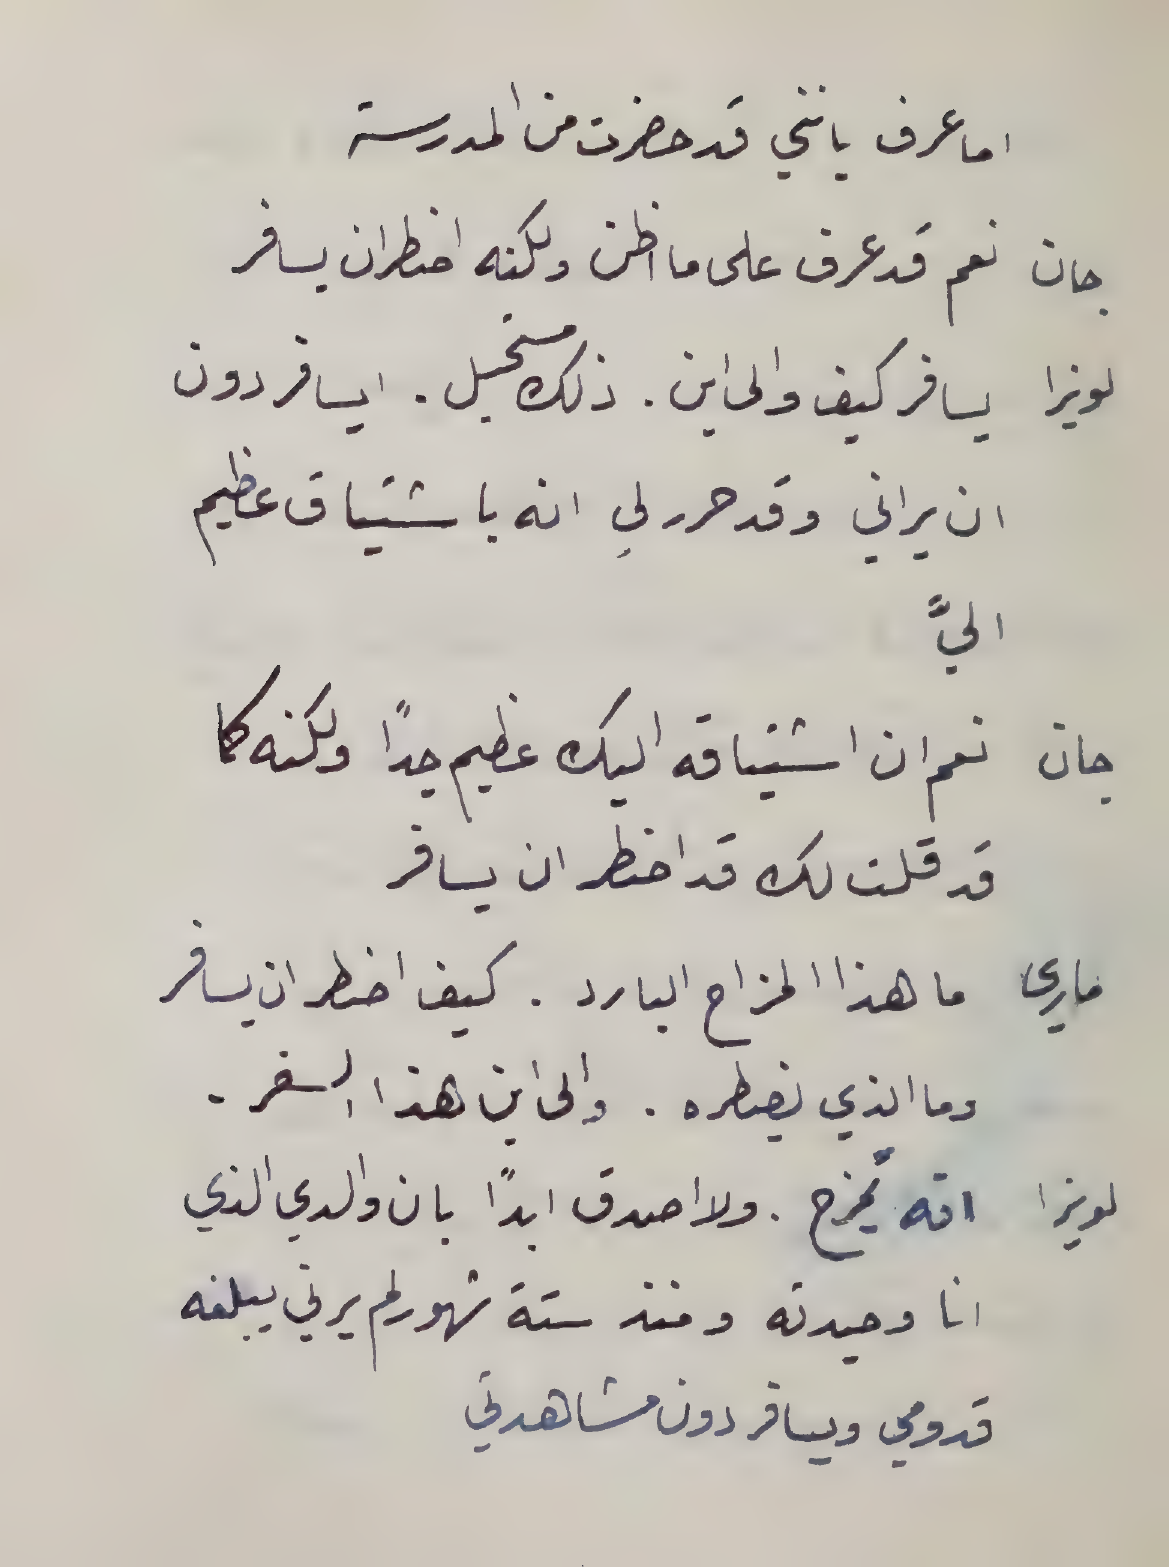 اما عرف بانني قد حضرت من المدرسة
جان نعم قد عرف على ما اظن ولكنه اضطر ان يسافر
لويزا يسافر كيف والى اين . ذلك مستحيل . ايسافر دون
ان يراني وقد حرر لي انه باشتياق عظيم
اليَّ
جان نعم ان اشتياقه اليك عظيم جداً ولكنه كما
قد قلت لك قد اضطر ان يسافر
ماري ما هذا المزاح البارد . كيف اضطر ان يسافر
وما الذي يضطره . والى اين هذا السفر .
لويزا انه يمزح . ولا اصدق ابداً بان والدي الذي
انا وحيدته ومنذ ستة شهور لم يرني يبلغه
قدومي ويسافر دون مشاهدتي